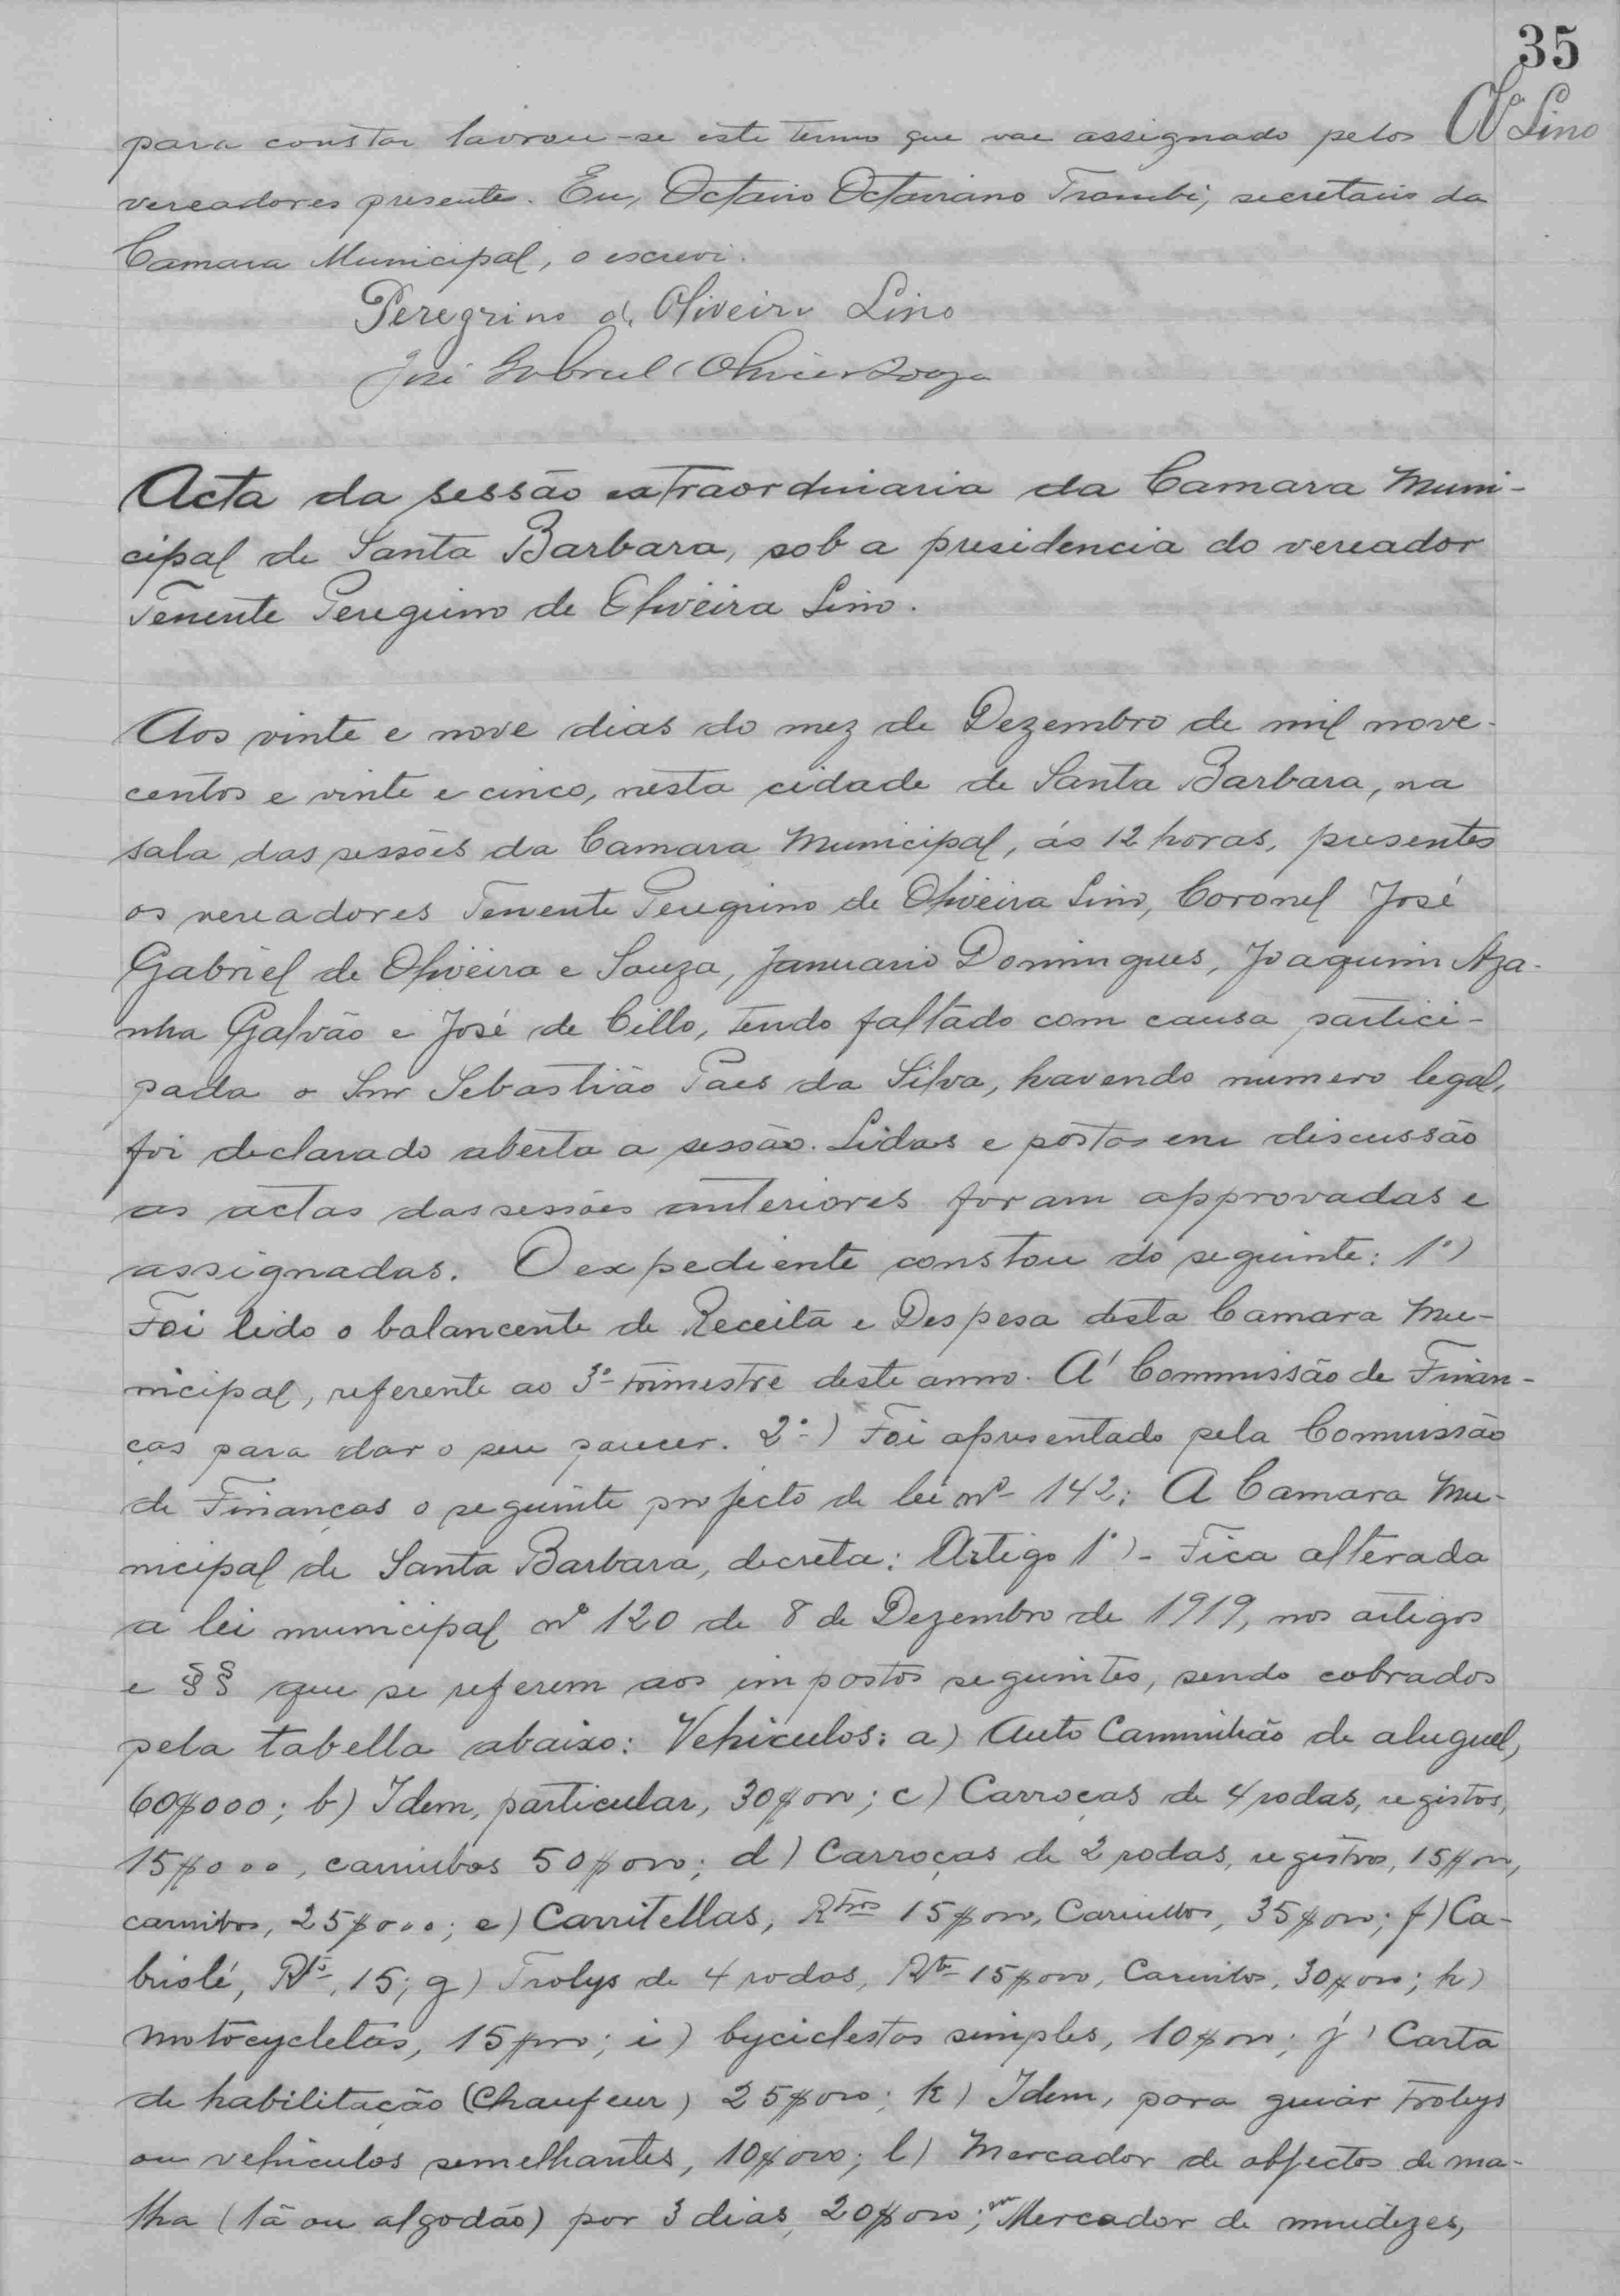 35
Oª Lino
para constar lavrou-se este termo que vae assignado pelos
vereadores presente. Eu, Octavio Octaviano Trambi, secretario da
Camara Municipal, o escrevi.
Peregrino d. Oliveira Lino
José Gabriel Oliveir Souza
Acta da sessão extraordinaria da Camara Muni-
cipal de Santa Barbara, sob a presidencia do vereador
Tenente Peregrino de Oliveira Lino.
Aos vinte e nove dias do mez de Dezembro de mil nove-
centos e vinte e cinco, nesta cidade de Santa Barbara, na
sala das sessões da Camara Municipal, ás 12 horas, presentes
os vereadores Tenente Peregrino de Oliveira Lino, Coronel José
Gabriel de Oliveira e Souza, Januario Domingues, Joaquim Aza-
nha Galvão e José de Cillo, tendo faltado com causa partici-
pada o Snr Sebastião Paes da Silva, havendo numero legal,
foi declarado aberta a sessão. Lidas e postas em discussão
as actas das sessões anteriores foram approvadas e
assignadas. O expediente constou do seguinte: 1º)
Foi lido o balancente de Receita e Despesa desta Camara Mu-
nicipal, referente ao 3º trimestre deste anno. A' Commissão de Finan-
ças para dar o seu parecer. 2º) Foi apresentado pela Commissão
de Finanças o seguinte projecto de lei nº 142: A Camara Mu-
nicipal de Santa Barbara, decreta: Artigo 1º) - Fica alterada
a lei municipal nº 120 de 8 de Dezembro de 1919, nos artigos
e §§ que se referem aos impostos seguintes, sendo cobrados
pela tabella abaixo: Vehiculos: a) Auto Camminhão de aluguel,
60$000; b) Idem, particular, 30$000; c) Carroças de 4 rodas, registos,
15$000, carimbos 50$000; d) Carroças de 2 rodas, registros, 15$000,
carimbos, 25$000; e) Carritellas, Rtros 15$000, Carimbos, 35$000; f) Ca-
briolé, Rtº, 15; g) Trolys de 4 rodas, Rtº 15$000, Carimbos, 30$000; h)
motocycletas, 15$000; i) byciclestas simples, 10$000; j) Carta
de habilitação (Chaufeur) 25$000; k) Idem, para guiar trolys
ou vehiculos semelhantes, 10$000; l) Mercador de objectos de ma-
lha (lã ou algodão) por 3 dias, 20$000; m Mercador de miudezes,